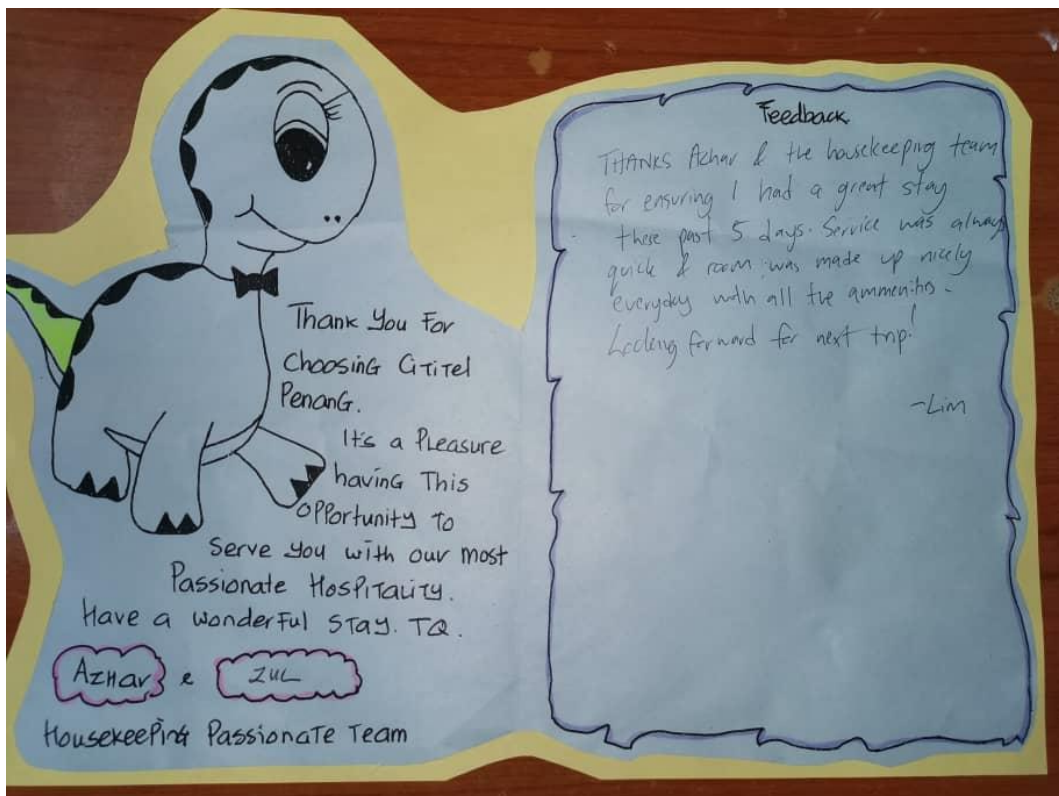 Thank You For
Choosing Cititel
Penang.
It's a Pleasure
having This
opportunity To
Serve you with our most
Passionate Hospitality.
Have a wonderful Stay. TQ.
Azhar & ZUL
Housekeeping Passionate Team
Feedback
THANKS Azhar & the housekeeping team
for ensuring I had a great stay
these past 5 days. Service was always
quick & room was made up nicely
everyday with all the ammenities.
Looking forward for next trip!
-Lim